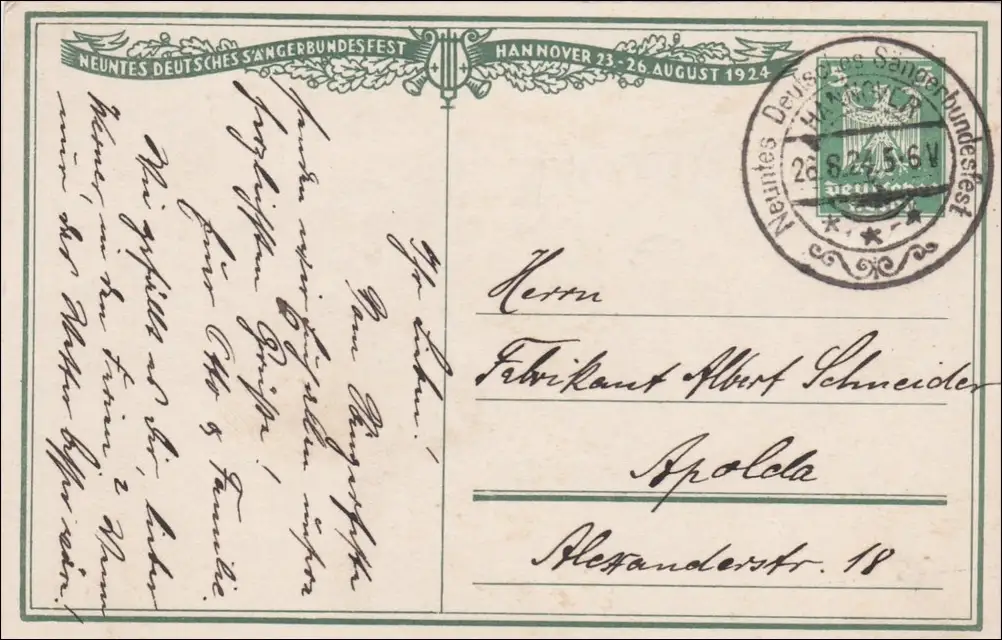 NEUNTES DEUTSCHES SÄNGERBUNDESFEST
HANNOVER 23-26. AUGUST 1924
Neuntes Deutsches Sängerbundesfest
HANNOVER
26.8.24.5-6V
Herrn
Fabrikant Albert Schneider
Apolda
Alexanderstr. 18
Ihr Lieben!
Vom Sängerfeste
senden wir Euch allen unsere
herzlichsten Grüße!
Euer Otto & Familie.
Wie gefällt es dir, lieber
Werner, in den Ferien? Wenn
nur das Wetter besser wär!